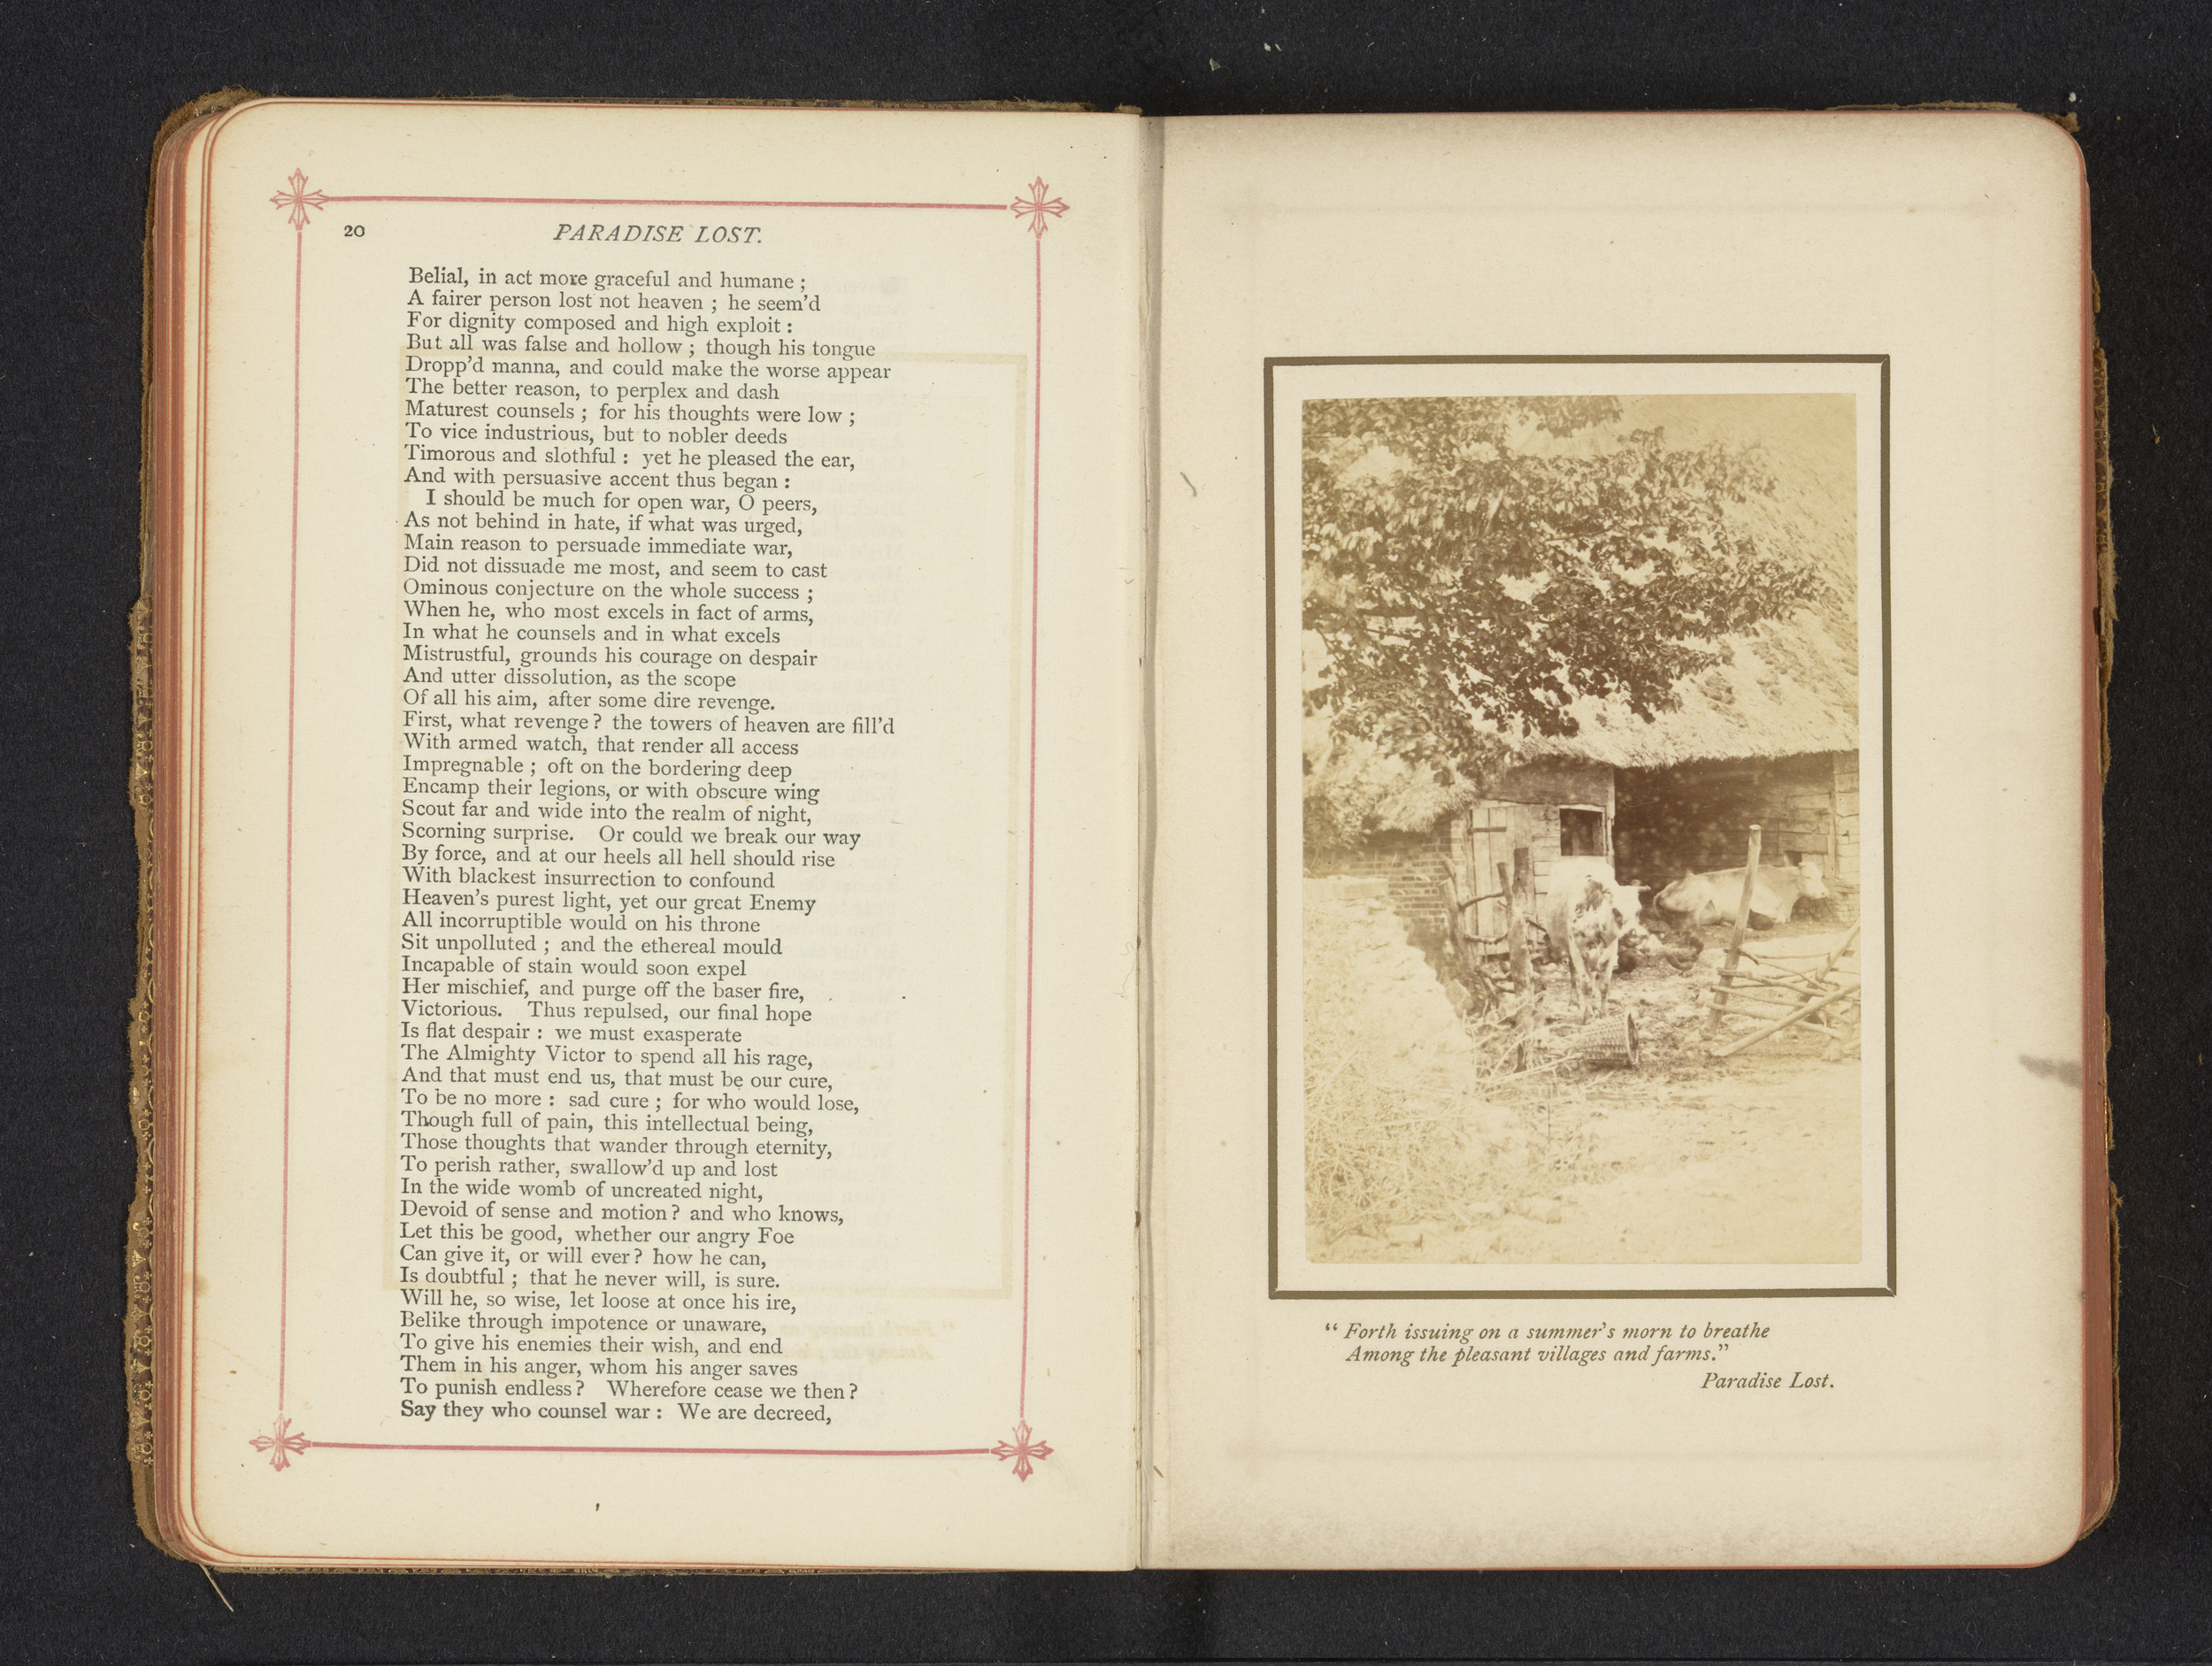 20
PARADISE LOST.
Belial, in act more graceful and humane ;
A fairer person lost not heaven ; he seem'd
For dignity composed and high exploit :
But all was false and hollow ; though his tongue
Dropp'd manna, and could make the worse appear
The better reason, to perplex and dash
Maturest counsels ; for his thoughts were low ;
To vice industrious, but to nobler deeds
Timorous and slothful : yet he pleased the ear,
And with persuasive accent thus began :
I should be much for open war, O peers,
As not behind in hate, if what was urged,
Main reason to persuade immediate war,
Did not dissuade me most, and seem to cast
Ominous conjecture on the whole success ;
When he, who most excels in fact of arms,
In what he counsels and in what excels
Mistrustful, grounds his courage on despair
And utter dissolution, as the scope
Of all his aim, after some dire revenge.
First, what revenge ? the towers of heaven are fill'd
With armed watch, that render all access
Impregnable ; oft on the bordering deep
Encamp their legions, or with obscure wing
Scout far and wide into the realm of night,
Scorning surprise. Or could we break our way
By force, and at our heels all hell should rise
With blackest insurrection to confound
Heaven's purest light, yet our great Enemy
All incorruptible would on his throne
Sit unpolluted ; and the ethereal mould
Incapable of stain would soon expel
Her mischief, and purge off the baser fire,
Victorious. Thus repulsed, our final hope
Is flat despair : we must exasperate
The Almighty Victor to spend all his rage,
And that must end us, that must be our cure,
To be no more : sad cure ; for who would lose,
Though full of pain, this intellectual being,
Those thoughts that wander through eternity,
To perish rather, swallow'd up and lost
In the wide womb of uncreated night,
Devoid of sense and motion ? and who knows,
Let this be good, whether our angry Foe
Can give it, or will ever ? how he can,
Is doubtful ; that he never will, is sure.
Will he, so wise, let loose at once his ire,
Belike through impotence or unaware,
To give his enemies their wish, and end
Them in his anger, whom his anger saves
To punish endless ? Wherefore cease we then ?
Say they who counsel war : We are decreed,
" Forth issuing on a summer's morn to breathe
Among the pleasant villages and farms."
Paradise Lost.